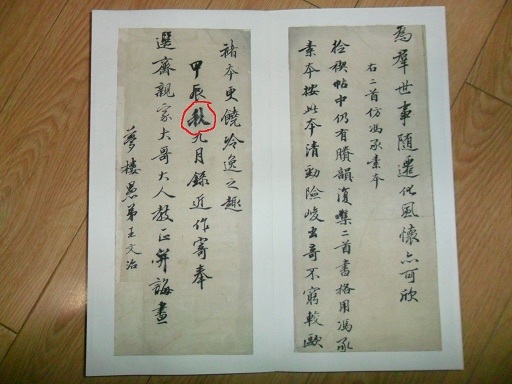 為羣世事随遷化風懷亦可欣
右二首仿馮承素本
禊帖中仍有賸韻復集二首書格用馮承
素本按此本清勁險峻出奇不窮較歐
褚本更饒冷逸之趣
甲辰秋九月錄近作寄奉
選齋親家大哥大人教正并誨畫
夢樓愚弟王文治